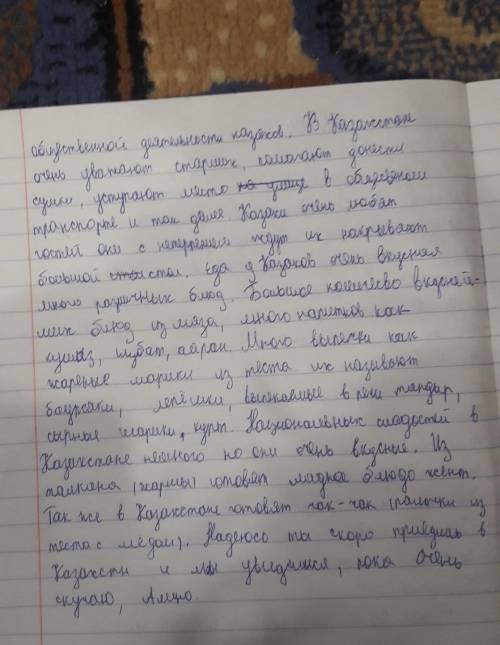 общественной деятельности казаков. В Казахстане
очень уважают старших, помагают донести
сумки, уступают место на улице в общественом
транспорте и так далее. Казахи очень любят
гостей они с нетерпением ждут их накрывают
большой стол. Еда у Казахов очень вкусная
много различных блюд. Большое количество вкусней-
ших блюд из мяза, много напитков как
кумыз, шубат, айран. Много выпечки как
жареные шарики из теста их называют
баурсаки, лепёшки, выпекаемые в печи тандыр,
сырные шарики, курт. Национальных сладостей в
Казахстане немного но они очень вкусные. Из
талкана (жарма) готовят сладкое блюдо жент.
Так же в Казахстане готовят чак-чак (палочки из
теста с мёдом). Надеюсь ты скоро приедишь в
Казахстн и мы увидимся, пока очень
скучаю,